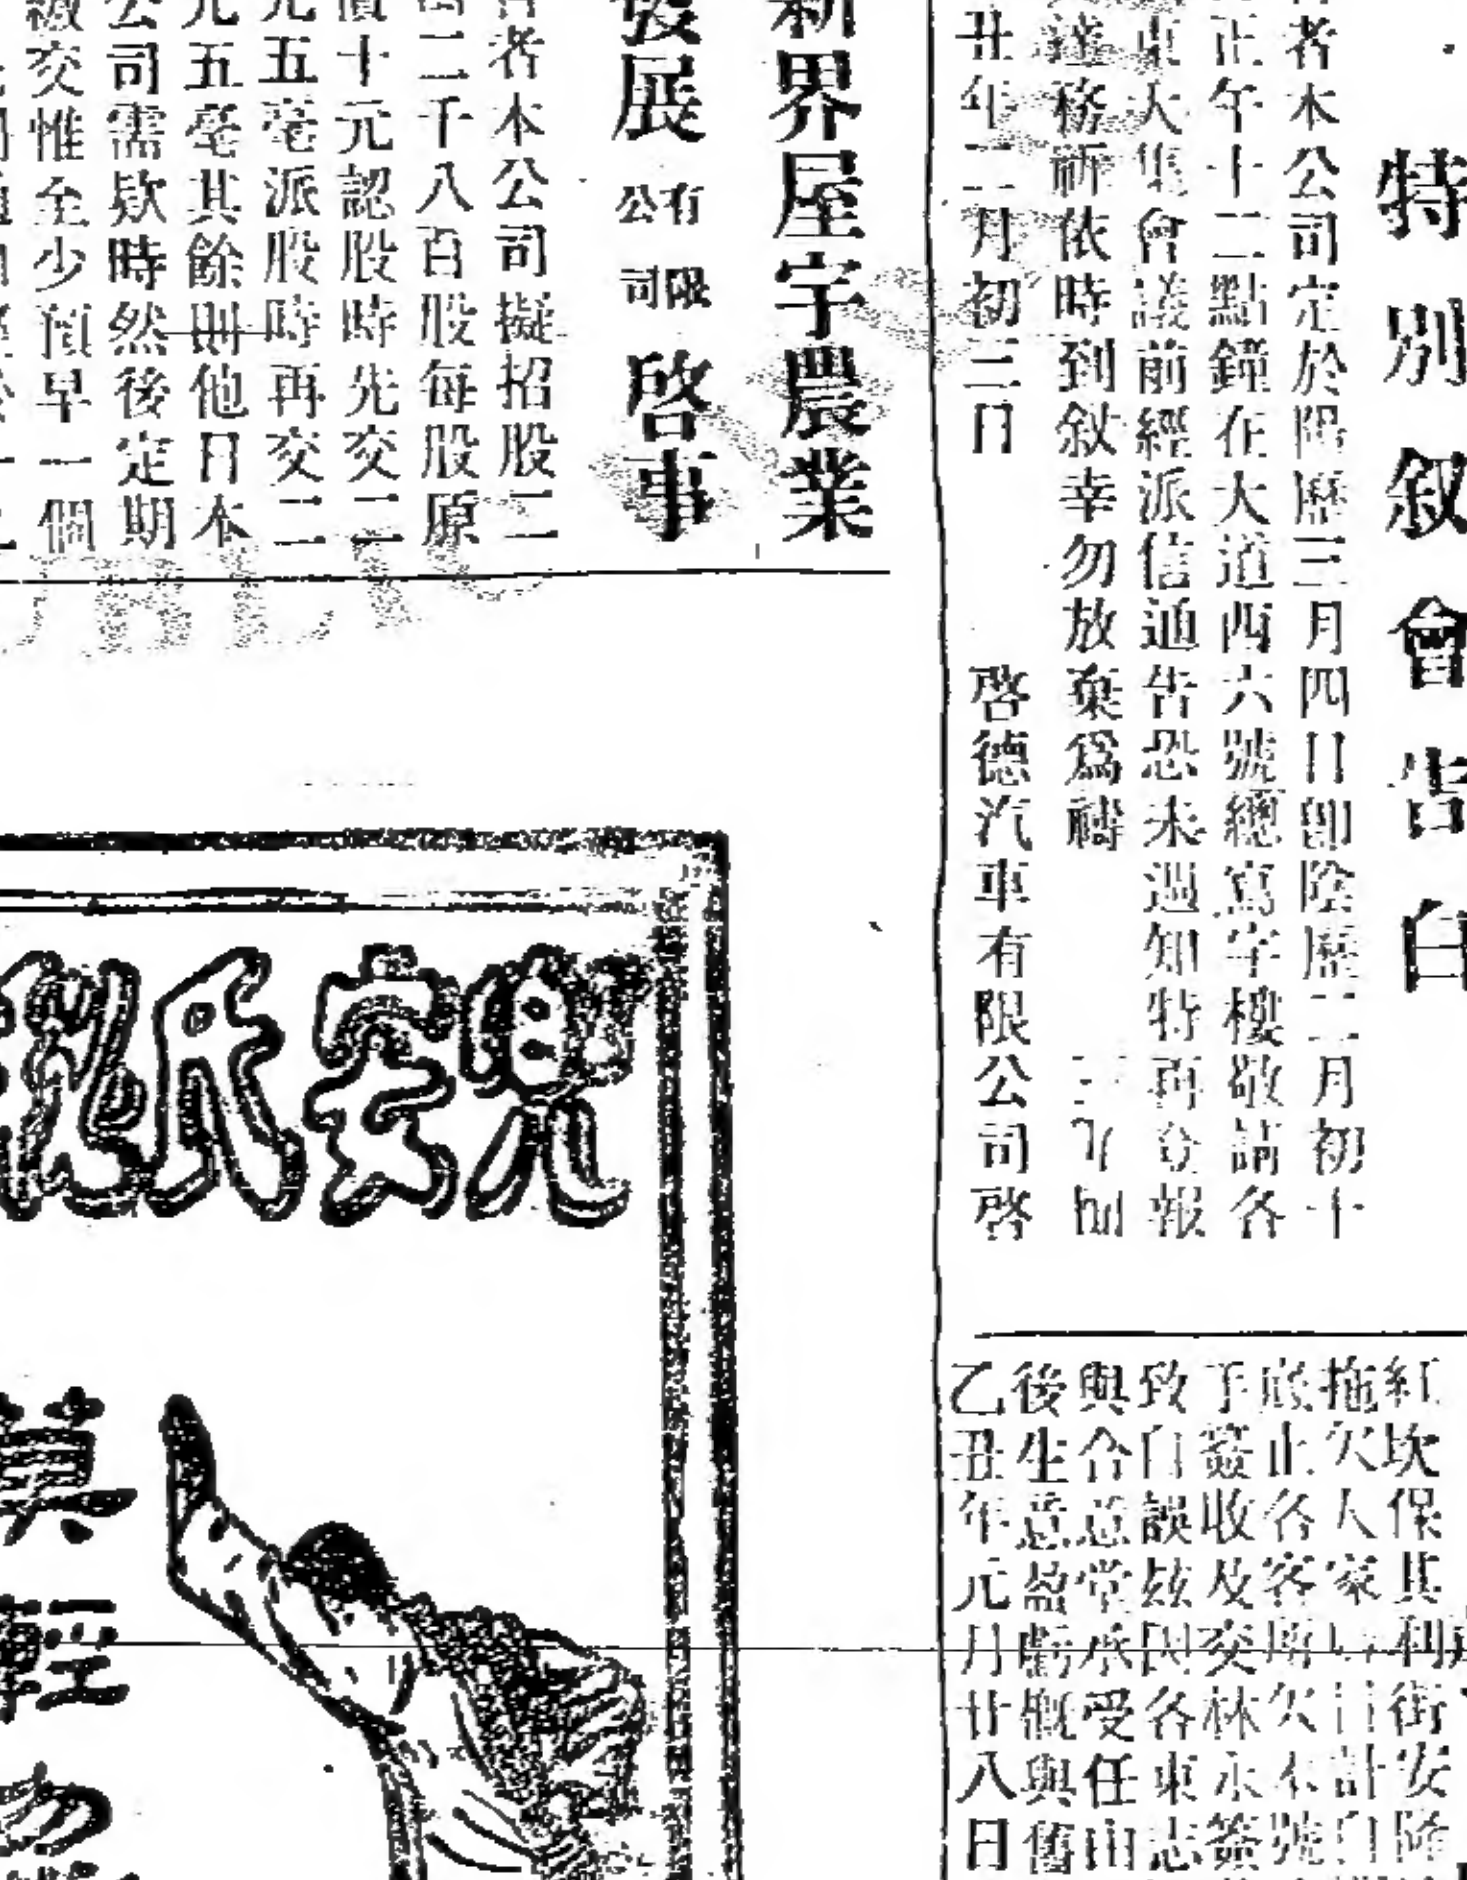 特別敘會告白
者本公司定於陽曆三月四日卽陰曆二月初十
正午十二點鐘在大道西六號總寫字樓敬請各
東大集會議前經派信通告恐未週知特再登報
謹務祈依時到敘幸勿放棄爲禱
丑年二月初三日
啓德汽車有限公司啓
新界屋宇農業
發展有限公司啓事
者本公司擬招股二
二千八百股每股原
十元認股時先交二
元五毫派股時再交二
元五毫其餘則他日本
公司需欵時然後定期
繳交惟至少預早一個
紅坎保其利街安隆
拖欠人家
底止各客所欠本號
手簽收及交林永簽
致自誤玆因各東志
與合意堂承受任由
後生意盈虧概與舊
乙丑年元月廿八日
兜安氏
莫輕勿